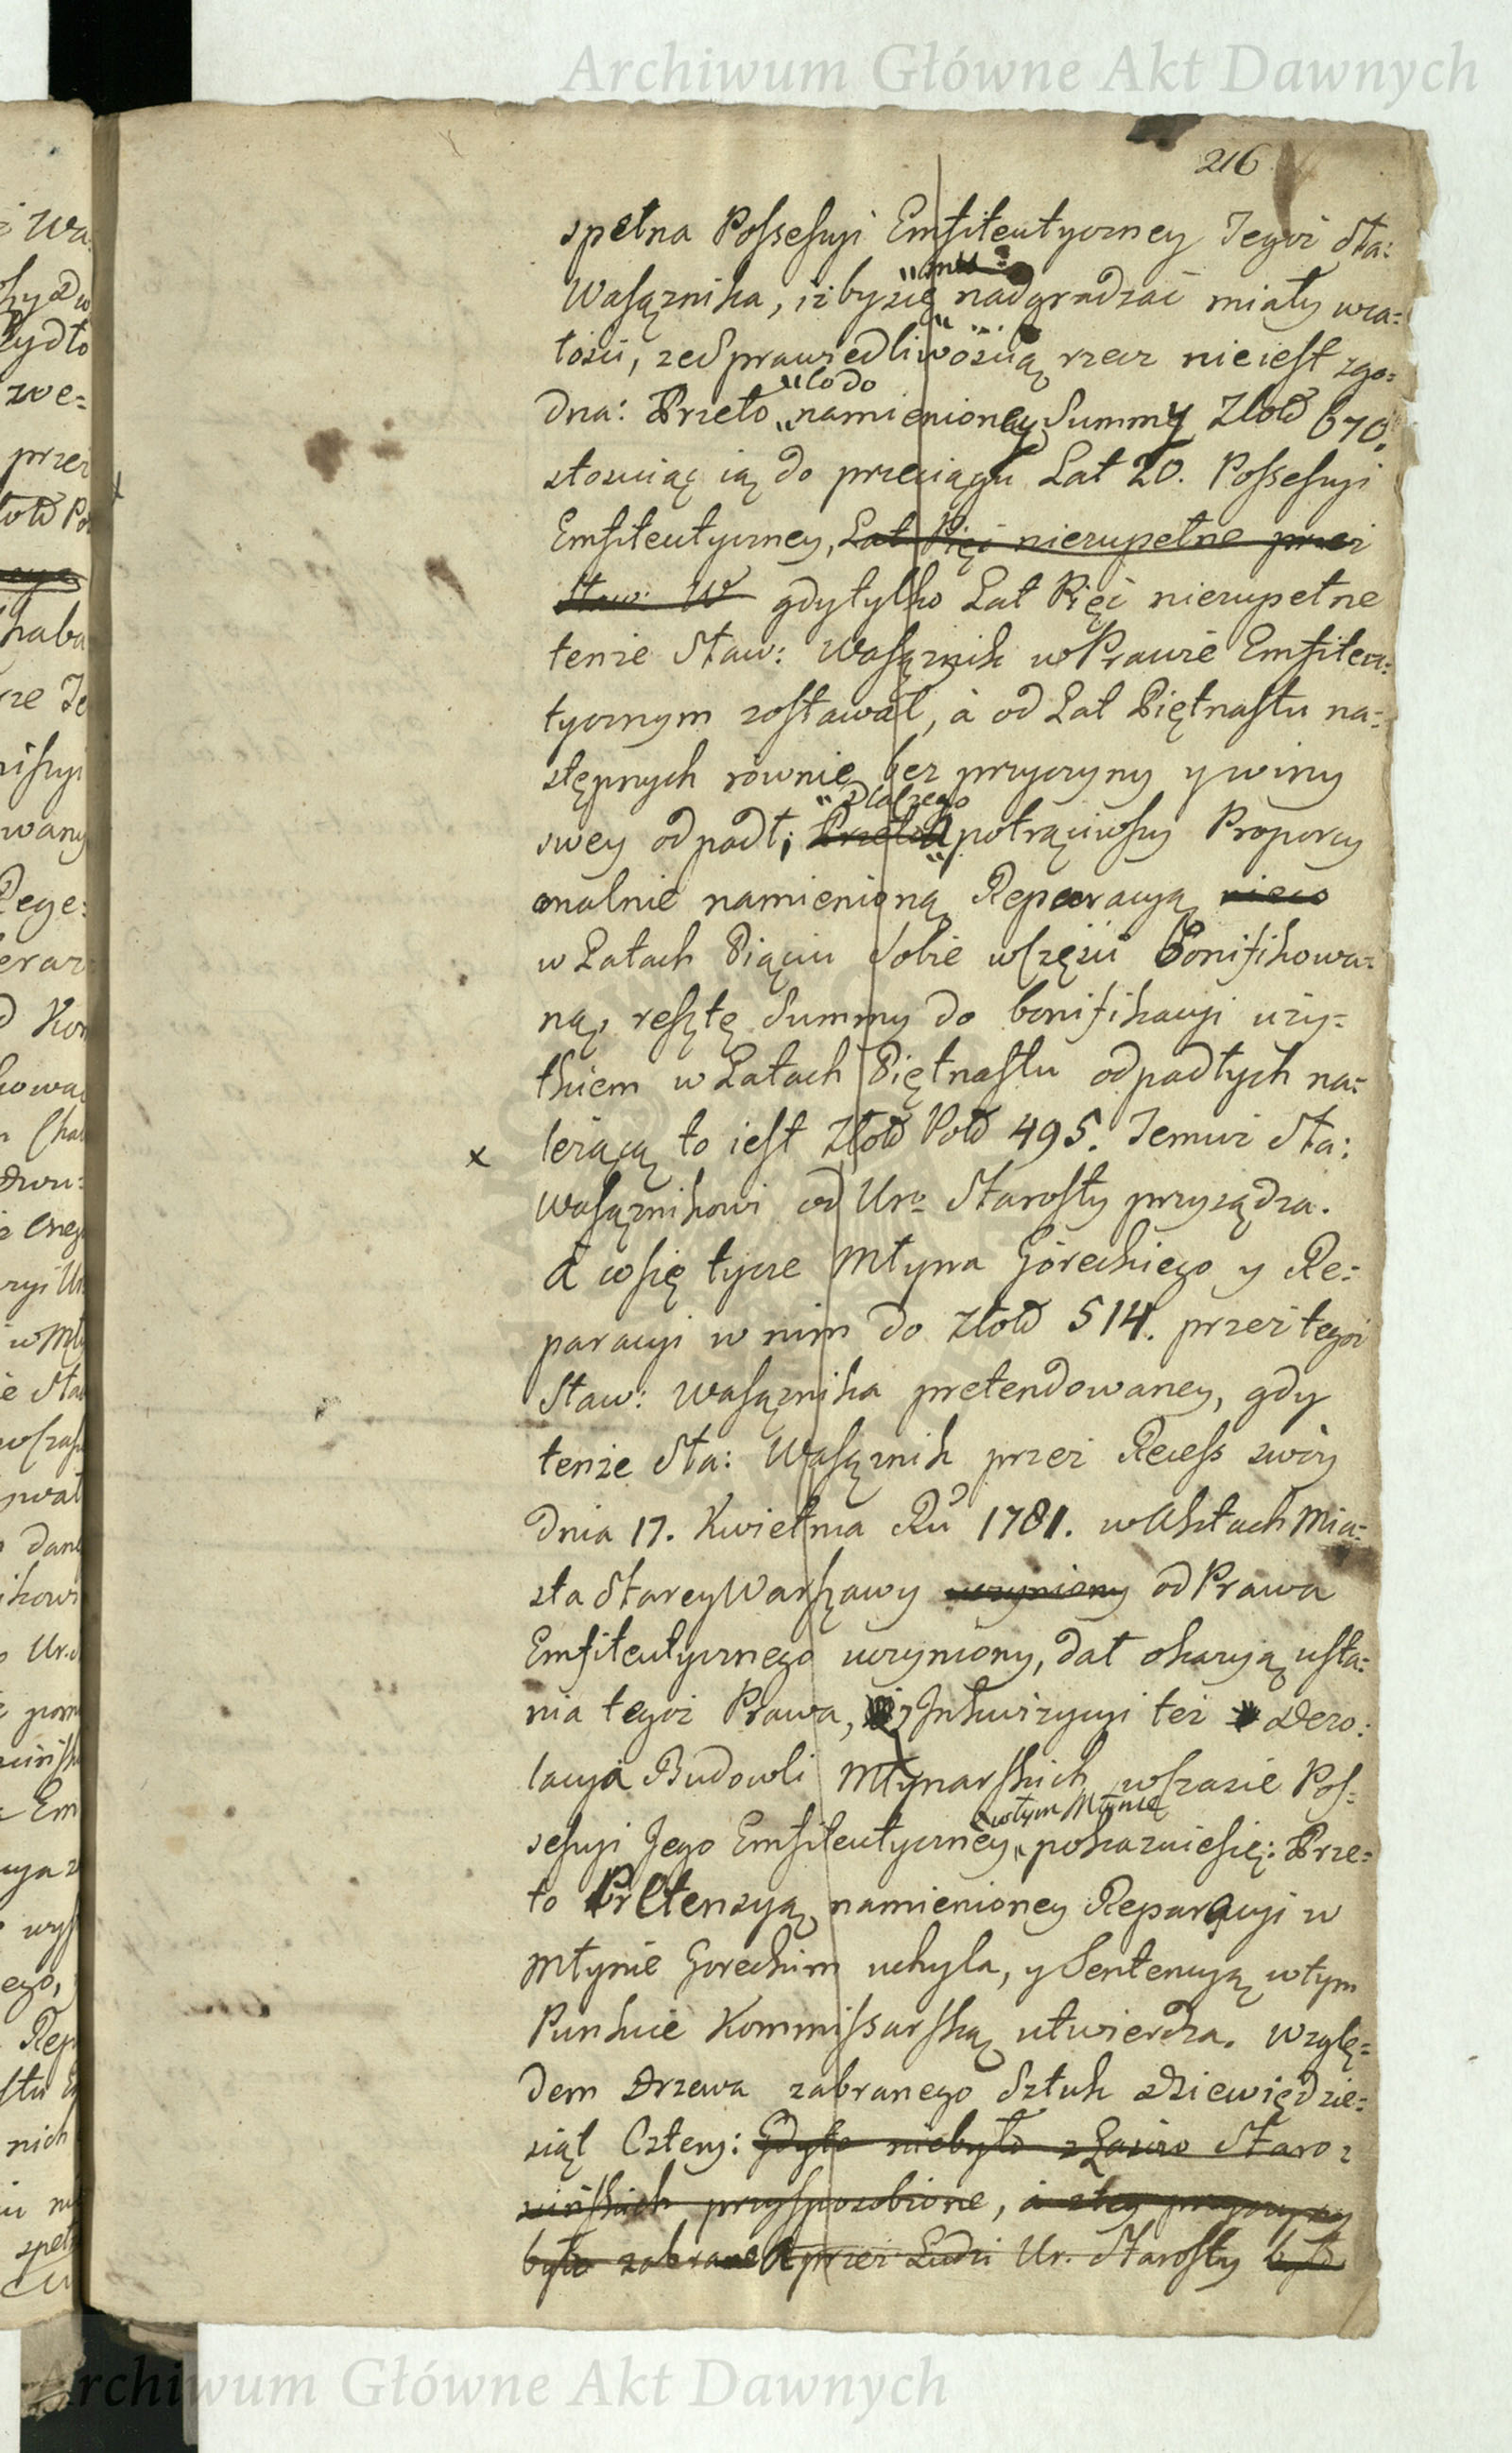 Archiwum Główne Akt Dawnych
216
spełna Possessyi Emfiteutyczney Tegoż Sta:
Wasążnika, iżby się nadgradzać miały wca=
łości, ze Sprawiedliwością rzecz nieiest zgo=
dna: Przeto „co do namienioney Summy Złotd 670.
stosuiąc ią do przeciągu Lat 20. Possessyi
Emfiteutyczney, Lat Pięć niezupełne przez
Staw: W gdy tylko Lat Pięć niezupełne
tenże Staw: Wasążnik w Prawie Emfiteu=
tycznym zostawał, à od Lat Piętnastu na=
stępnych równie bez przyczyny y winy
swey odpadł; Przeto „Dlaczego potrąciwszy Proporcy
onalnie namienioną Reparacyą
w Latach Pięciu Sobie wczęści bonifikowa=
ną, resztę Summy do bonifikacyi uży=
tkiem w Latach Piętnastu odpadłych na=
x leżącą to iest Złotd Pold 495. Temuż Sta:
Wasążnikowi od Uro Starosty przysądza.
A co się tycze Młyna Góreckiego y Re=
paracyi w nim do Złotd 514. przez tegoż
Staw: Wasążnika pretendowaney, gdy
tenże Sta: Wasążnik przez Recess swóy
Dnia 17. Kwietnia Ru 1781. w Aktach Mia=
sta Starey Warszawy uczyniony od Prawa
Emfiteutycznego uczyniony, dał okazyą usta=
nia tegoż Prawa, z Inkwizycyi też Dezo=
lacya Budowli Młynarskich wczasie Pos=
sessyi Jego Emfiteutyczney „w tym Młynie pokazuie się: Prze=
to Pretensyą namienioney Reparacyi w
Młynie Goreckim uchyla, y Sentencyą w tym
Punkcie Kommissarską utwierdza. Wzglę=
dem Drzewa zabranego Sztuk Dziewiędzie=
siąt Cztery: Gdyto niebyło z Lasów Staro=
ścińskich przysposobione, à z tey przyczyny
było zabrane przez Ludzi Ur. Starosty
Archiwum Główne Akt Dawnych